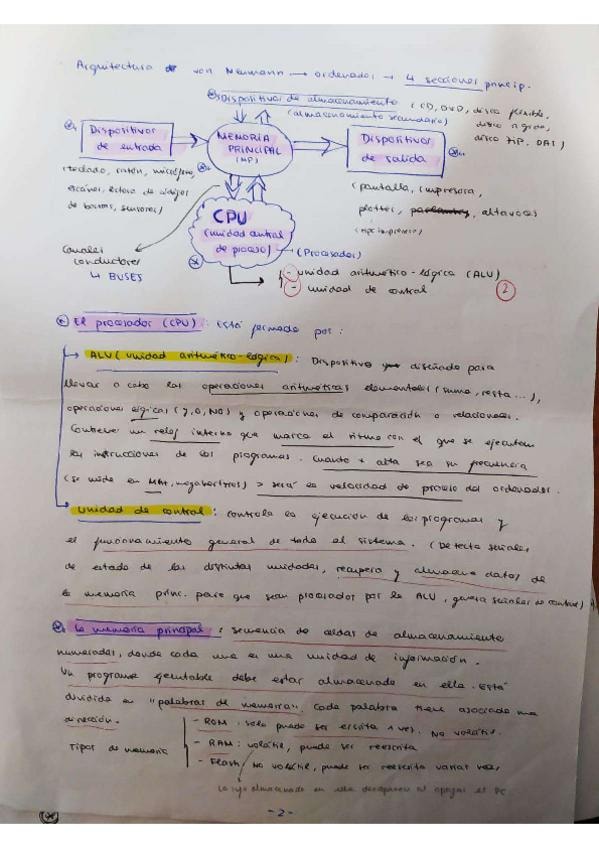 Arquitectura de von Neumann → ordenador → 4 secciones princip.
Dispositivos de almacenamiento (CD, DVD, disco flexible,
(almacenamiento secundario) disco rígido,
disco ZIP, DAT)
Dispositivos
de entrada
MEMORIA
PRINCIPAL
(MP)
Dispositivos
de salida
(teclado, ratón, micrófono,
escáner, lectora de códigos
de barras, sensores)
(pantalla, impresora,
plotter, altavoces
CPU
(unidad central
de proceso)
(Procesador)
Canales
conductores
4 BUSES
- unidad aritmético-lógica (ALU)
- unidad de control
2
El procesador (CPU): Está formado por:
ALU (unidad aritmético-lógica): Dispositivo diseñado para
llevar a cabo las operaciones aritméticas elementales (suma, resta...),
operaciones lógicas (y, o, NO) y operaciones de comparación o relacionales.
Contiene un reloj interno que marca el ritmo con el que se ejecutan
las instrucciones de los programas. Cuanto + alta sea su frecuencia
(se mide en MHz, megahertzios) > será la velocidad de proceso del ordenador.
Unidad de control: controla la ejecución de los programas y
el funcionamiento general de todo el sistema. (Detecta señales
de estado de las distintas unidades, recupera y almacena datos de
la memoria princ. para que sean procesador por la ALU, genera señales de control)
La memoria principal: secuencia de celdas de almacenamiento
numeradas, donde cada una es una unidad de información.
Un programa ejecutable debe estar almacenado en ella. Está
dividida en "palabras de memoria". Cada palabra tiene asociada una
dirección.
Tipos de memoria
- ROM: solo puede ser escrita 1 vez. No volátil.
- RAM: volátil, puede ser reescrita
- Flash, No volátil, puede ser reescrita varias vec.
Lo almacenado en ella desaparece al apagar el PC
-2-